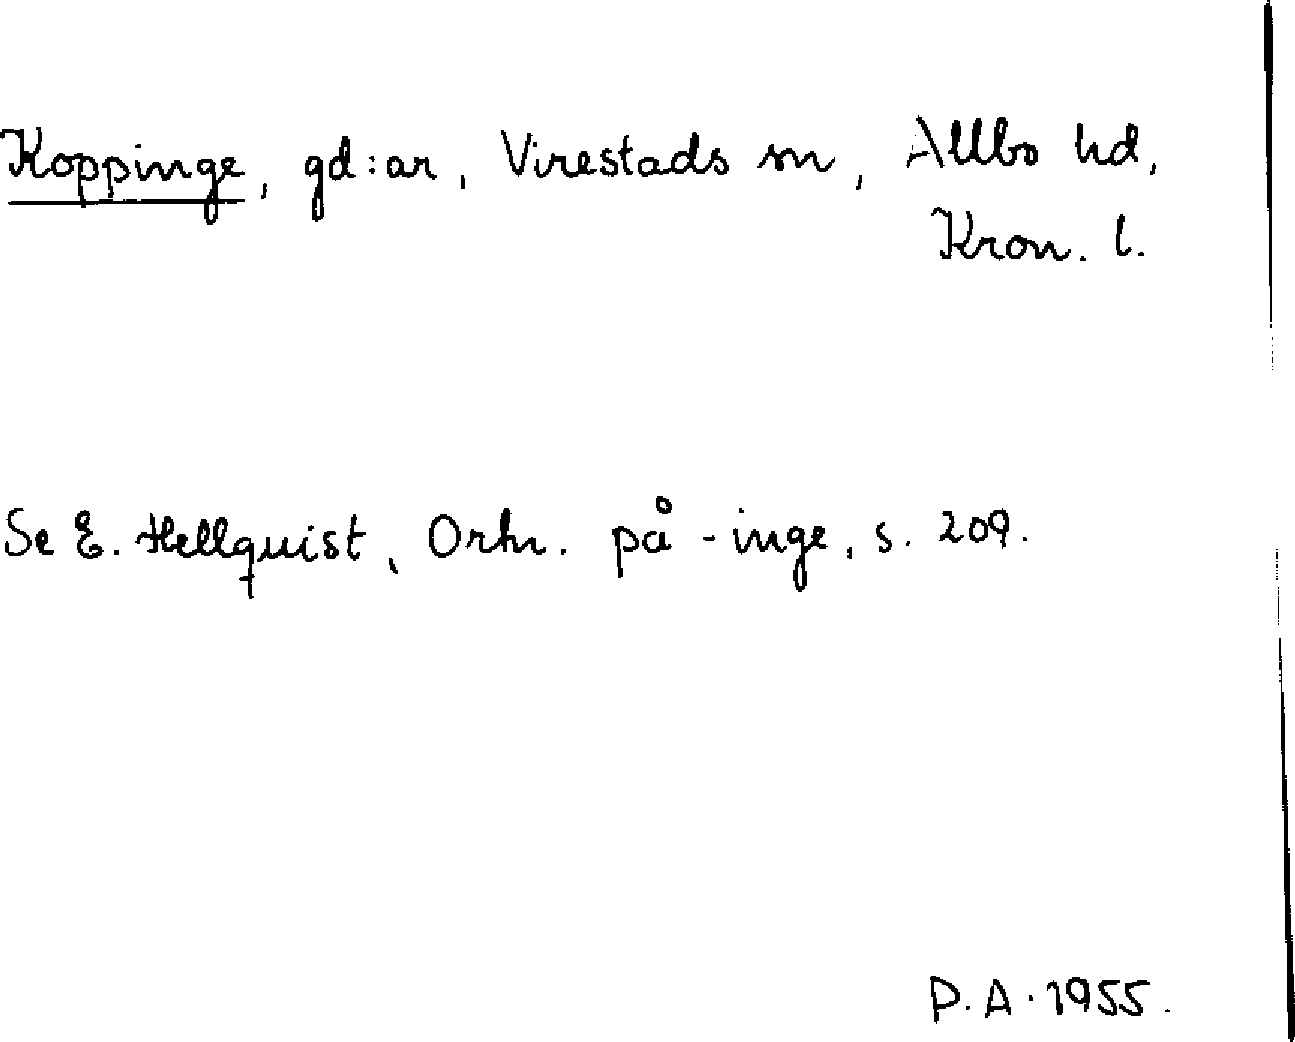 Koppinge, gd:ar, Virestads sn, Allbo hd,
Kron. l.
Se E. Hellquist, Ortn. på -inge, s. 209.
P.A. 1955.